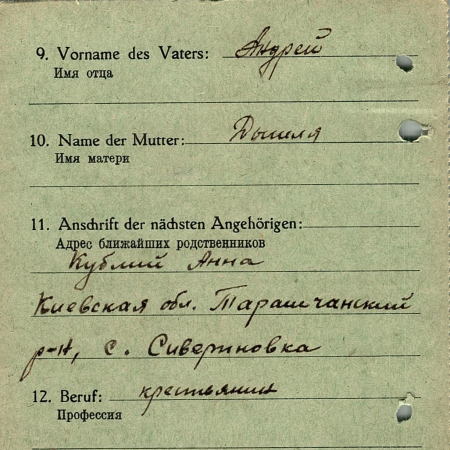 9. Vorname des Vaters: Андрей
Имя отца
10. Name der Mutter:
Имя матери
11. Anschrift der nächsten Angehörigen:
Адрес ближайших родственников
Кублий Анна
Киевская обл. Тарашчанский
р-н, с. Сивериновка
12. Beruf: крестьянин
Профессия